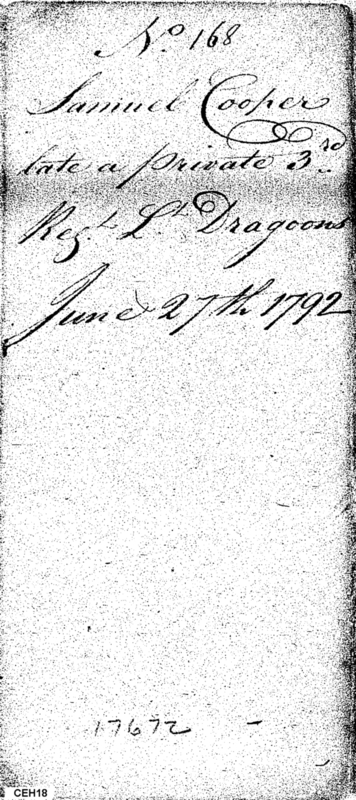 No 168
Samuel Cooper
late a private 3rd
Regt. Lt. Dragoons
June 27th 1792
17672
CEH18